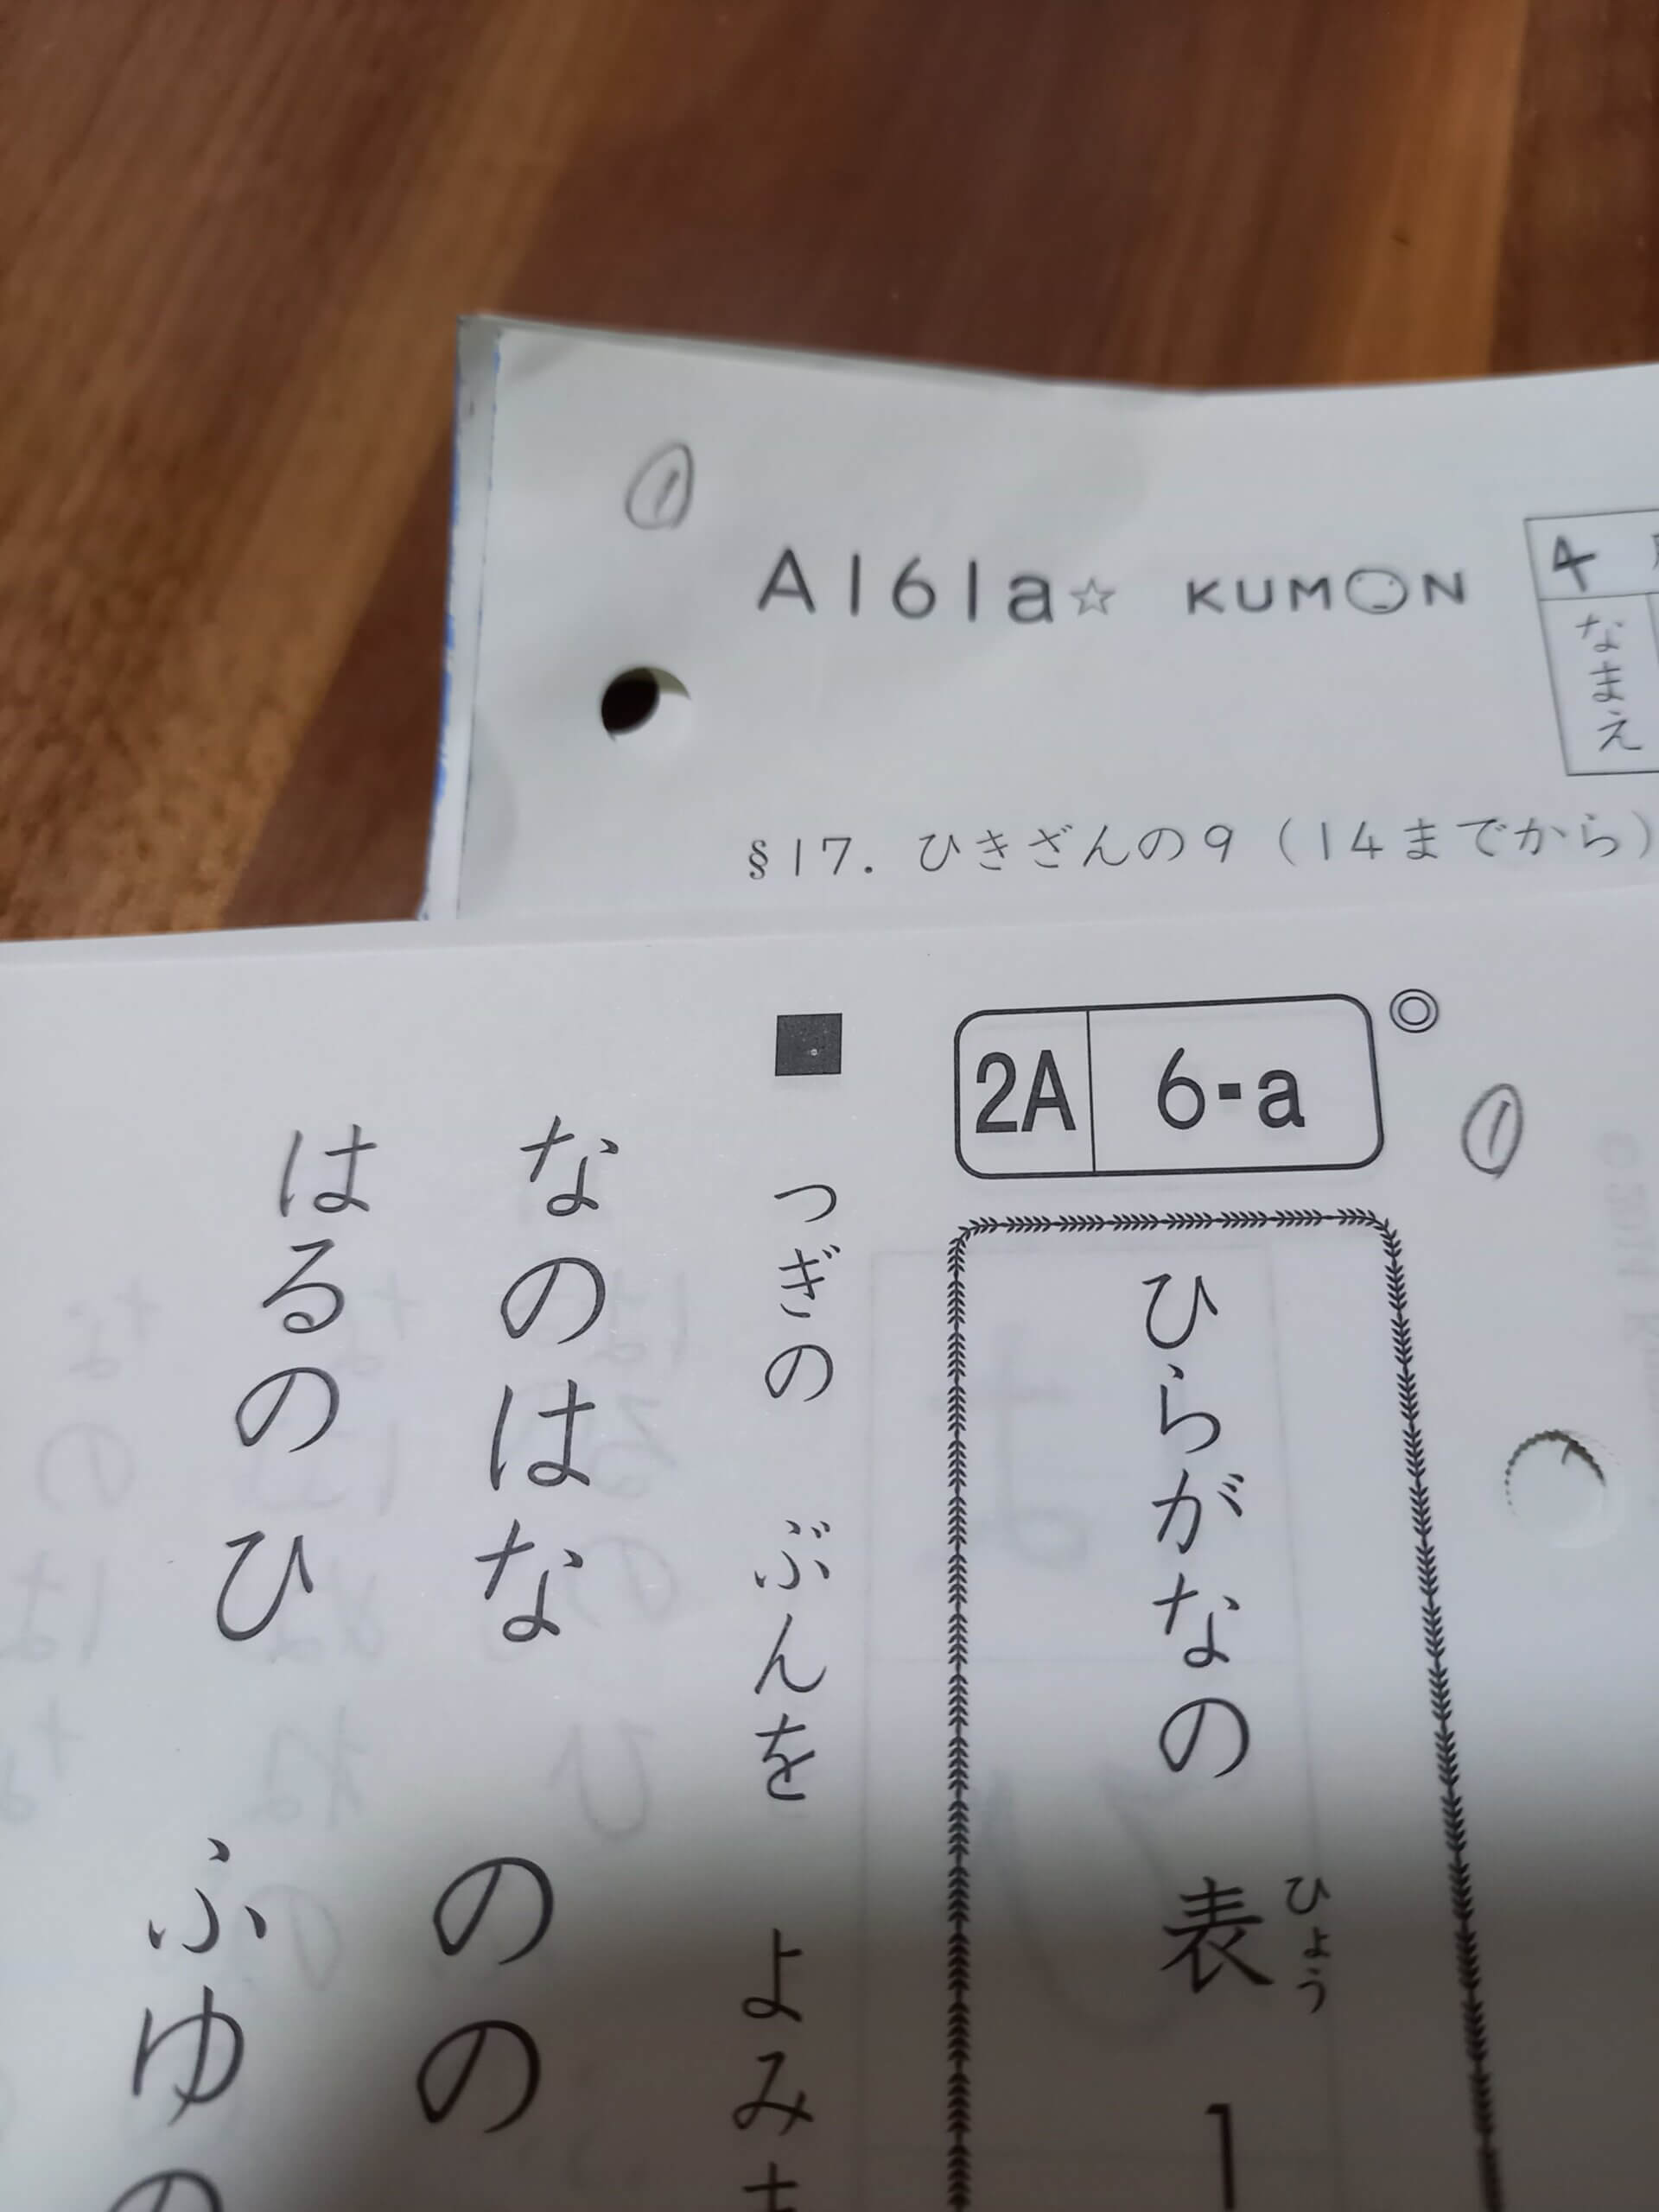 ①
A161a☆ KUMON
4
なまえ
§17. ひきざんの9（14までから）
◎
①
2A 6-a
ひらがなの 表 1
ひょう
■ つぎの ぶんを よみ
なのはな のの
はるのひ ふゆの